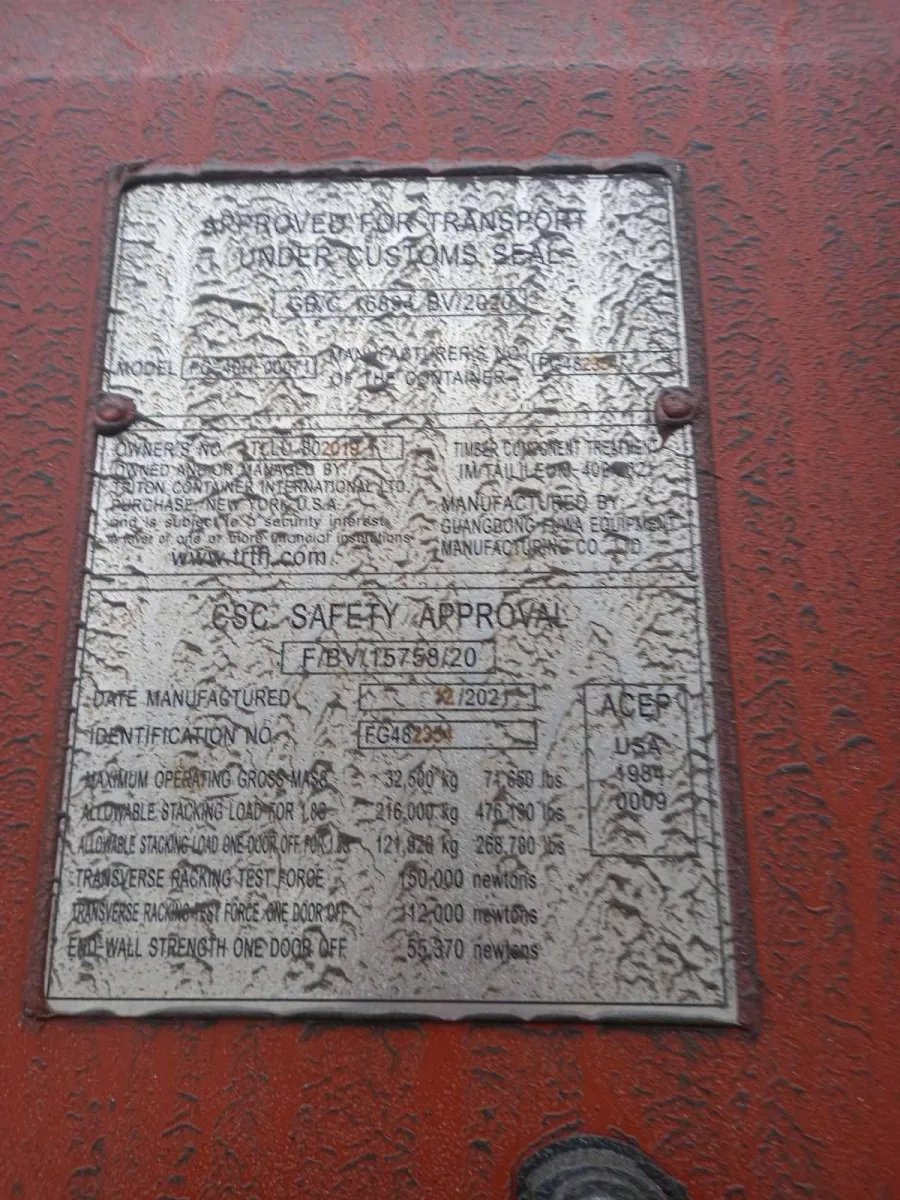 APPROVED FOR TRANSPORT
UNDER CUSTOMS SEAL
GB/C BV/2020
MODEL
MANUFACTURER'S NO.
OF THE CONTAINER
OWNER'S NO.
OWNED AND/OR MANAGED BY:
TRITON CONTAINER INTERNATIONAL LTD.
PURCHASE, NEW YORK, U.S.A.
and is subject to a security interest
in favor of one or more financial institutions
www.trtn.com
TIMBER COMPONENT TREATMENT
MANUFACTURED BY:
EQUIPMENT
MANUFACTURING CO., LTD.
CSC SAFETY APPROVAL
F/BV/15758/20
DATE MANUFACTURED 12/2021
IDENTIFICATION NO.
MAXIMUM OPERATING GROSS MASS 32,500 kg 71,650 lbs
ALLOWABLE STACKING LOAD FOR 1.8G 216,000 kg 476,190 lbs
ALLOWABLE STACKING LOAD ONE DOOR OFF FOR 1.8G 121,920 kg 268,780 lbs
TRANSVERSE RACKING TEST FORCE 150,000 newtons
TRANSVERSE RACKING TEST FORCE ONE DOOR OFF 112,000 newtons
END-WALL STRENGTH ONE DOOR OFF 55,370 newtons
ACEP
USA
1984
0009